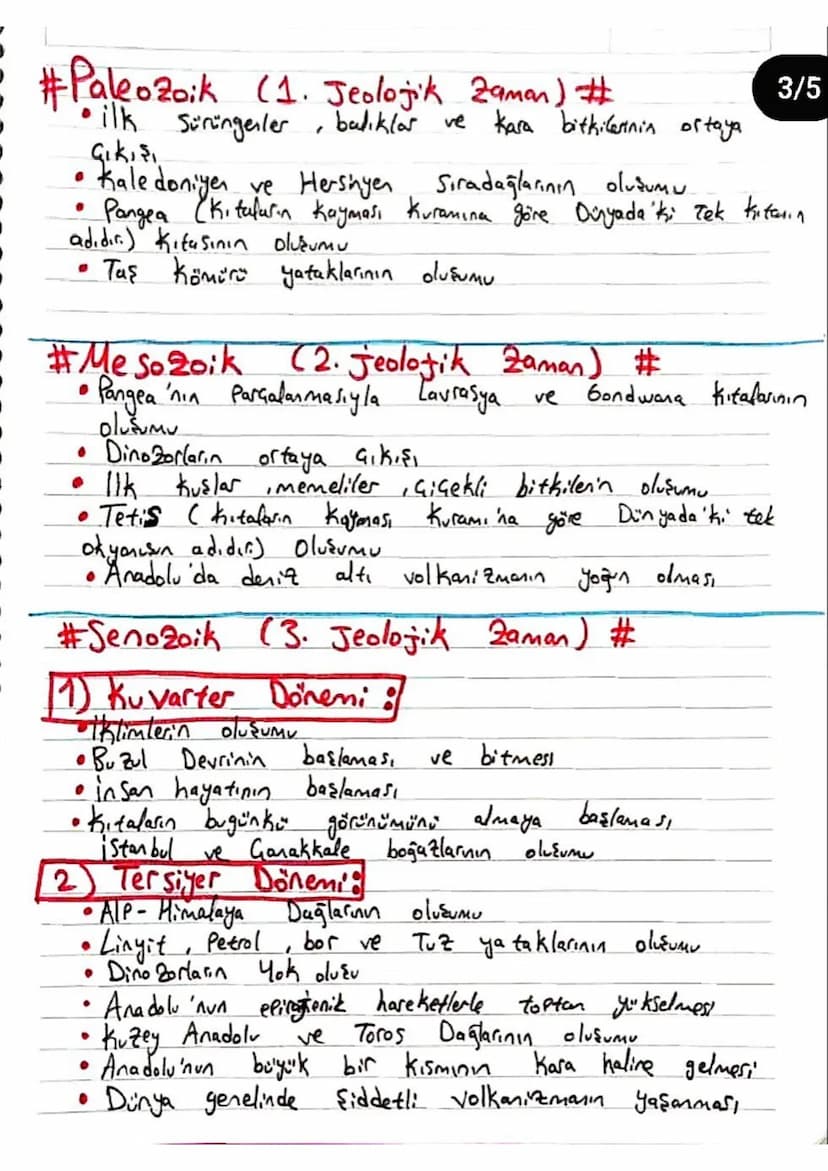 3/5
#Paleozoik (1. Jeolojik Zaman) #
• ilk Sürüngenler, balıklar ve kara bitkilerinin ortaya
çıkışı
• Kaledoniyen ve Hersinyen Sıradağlarının oluşumu
• Pangea (Kıtaların Kayması Kuramına göre Dünyada'ki Tek kıtanın
adıdır.) Kıtasının oluşumu
• Taş Kömürü yataklarının oluşumu
#Mesozoik (2. jeolojik Zaman) #
• Pangea'nın Parçalanmasıyla Lavrasya ve Gondwana Kıtalarının
oluşumu
• Dinozorların ortaya çıkışı
• İlk kuşlar, memeliler, çiçekli bitkilerin oluşumu
• Tetis (kıtaların Kayması Kuramı'na göre Dünyada'ki tek
okyanusun adıdır.) Oluşumu
• Anadolu'da deniz altı volkanizmanın yoğun olması
#Senozoik (3. Jeolojik Zaman) #
1) Kuvarter Dönemi:
• İklimlerin oluşumu
• Buzul Devrinin başlaması ve bitmesi
• insan hayatının başlaması
• Kıtaların bugünkü görünümünü almaya başlaması
istanbul ve Çanakkale boğazlarının oluşumu
2) Tersiyer Dönemi:
• Alp-Himalaya Dağlarının oluşumu
• Linyit, Petrol, bor ve Tuz yataklarının oluşumu
• Dinozorların Yok oluşu
• Anadolu'nun epirojenik hareketlerle toptan yükselmesi
• Kuzey Anadolu ve Toros Dağlarının oluşumu
• Anadolu'nun büyük bir kısmının kara haline gelmesi
• Dünya genelinde şiddetli volkanizmanın yaşanması